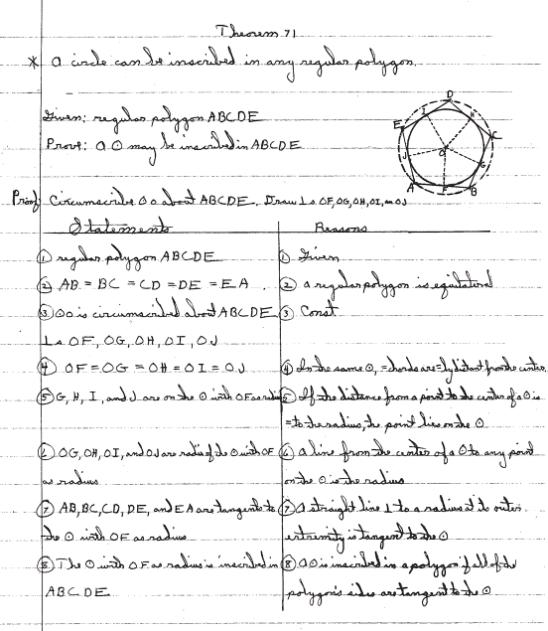 Theorem 71
* A circle can be inscribed in any regular polygon.
Given: regular polygon ABCDE
Prove: a ⊙ may be inscribed in ABCDE
D
I
H
E
C
O
J
G
A
F
B
Proof Circumscribe ⊙O about ABCDE. Draw ⊥s OF, OG, OH, OI, and OJ
Statements Reasons
① regular polygon ABCDE ① Given
② AB = BC = CD = DE = EA ② a regular polygon is equilateral
③ ⊙O is circumscribed about ABCDE ③ Const
⊥s OF, OG, OH, OI, OJ
④ OF = OG = OH = OI = OJ ④ In the same ⊙, = chords are =ly distant from the center
⑤ G, H, I, and J are on the ⊙ with OF as radius ⑤ If the distance from a point to the center of a ⊙ is
= to the radius, the point lies on the ⊙
⑥ OG, OH, OI, and OJ are radii of the ⊙ with OF ⑥ a line from the center of a ⊙ to any point
as radius on the ⊙ is the radius
⑦ AB, BC, CD, DE, and EA are tangents to ⑦ a straight line ⊥ to a radius at its outer
the ⊙ with OF as radius extremity is tangent to the ⊙
⑧ The ⊙ with OF as radius is inscribed in ⑧ a ⊙ is inscribed in a polygon if all of the
ABCDE polygon's sides are tangent to the ⊙